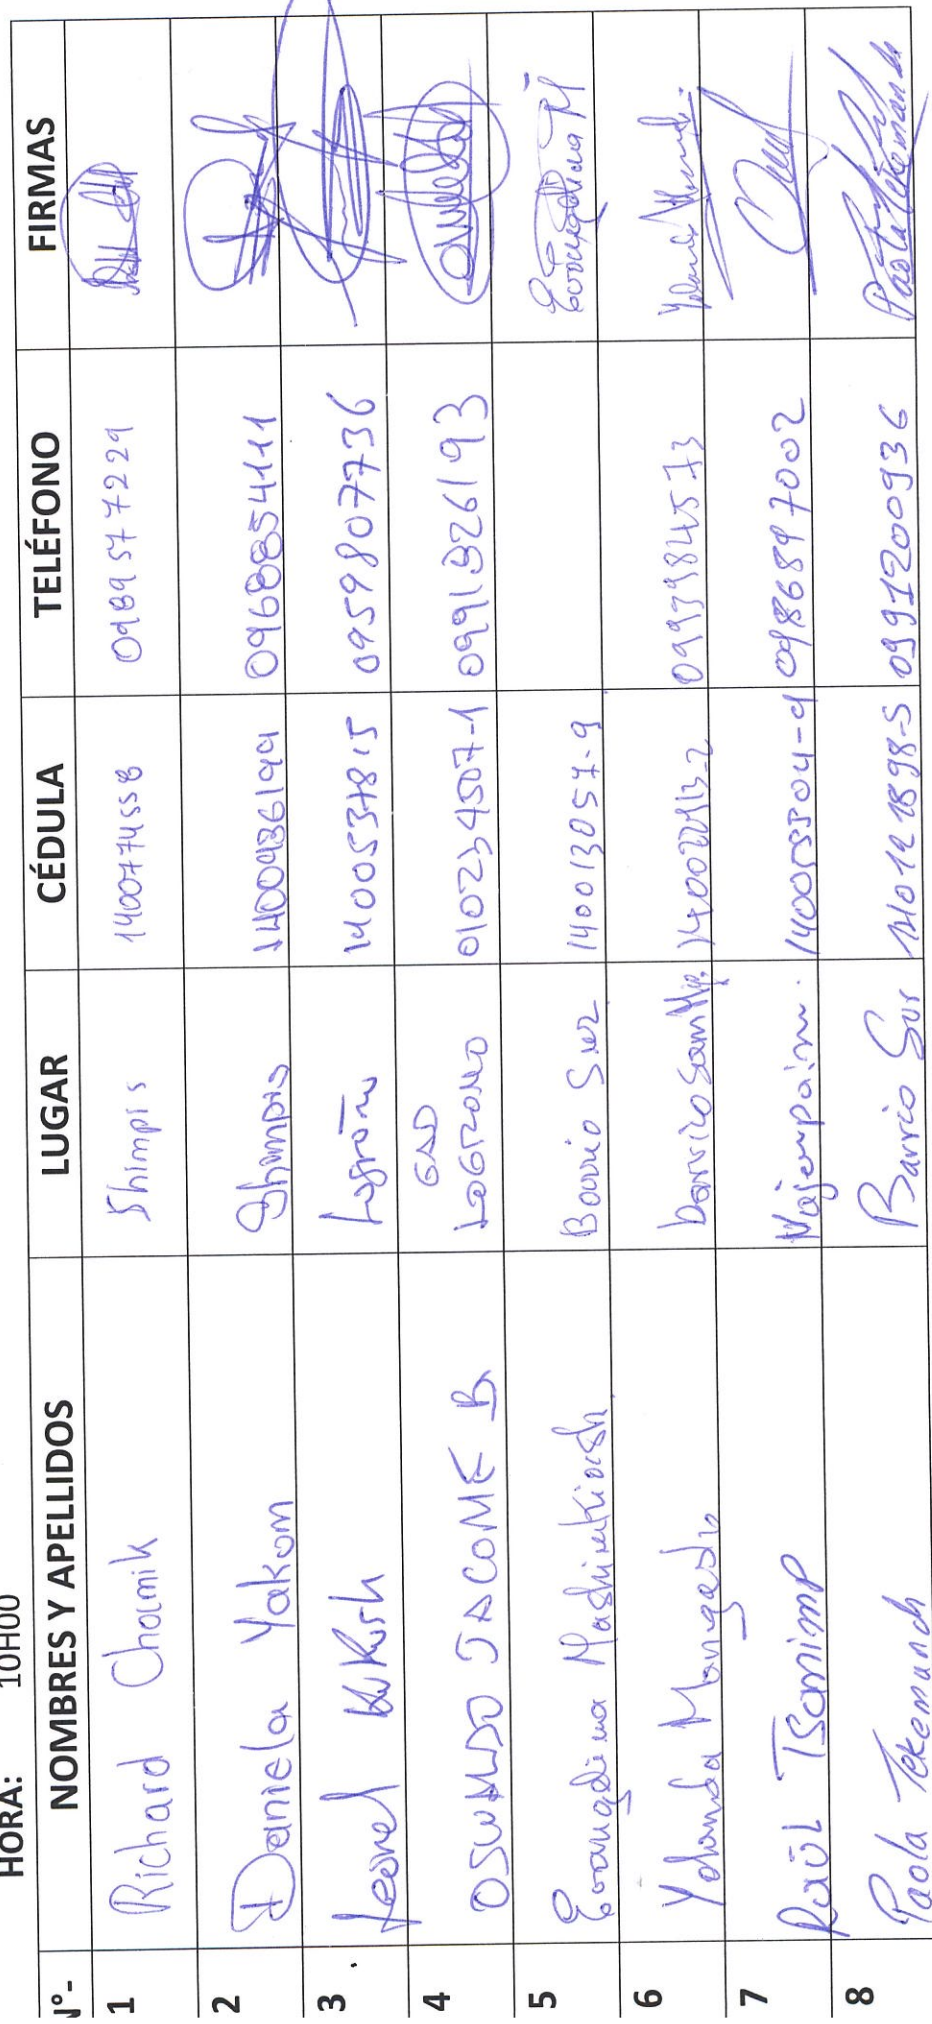 HORA: 10H00
N°- NOMBRES Y APELLIDOS LUGAR CÉDULA TELÉFONO FIRMAS
1 Richard Chamik Shimpis 1400774558 0989577229
2 Daniela Yakum Shimpis 1400936199 0968854111
3 Leonel Kukush Logroño 1400537815 0959807736
4 OSWALDO JACOME B GAD LOGROÑO 010234507-1 0991326193
5 Evangelina Mashinkiash Barrio Sur 140013057-9 Evangelina M
6 Yolanda barrio San 0993984573 Yolanda
7 RaÚL Tsamimp 140055504-9 0986897002
8 Paola Tekemanch Barrio Sur 140121898-5 0991200936 Paola Tekemanch